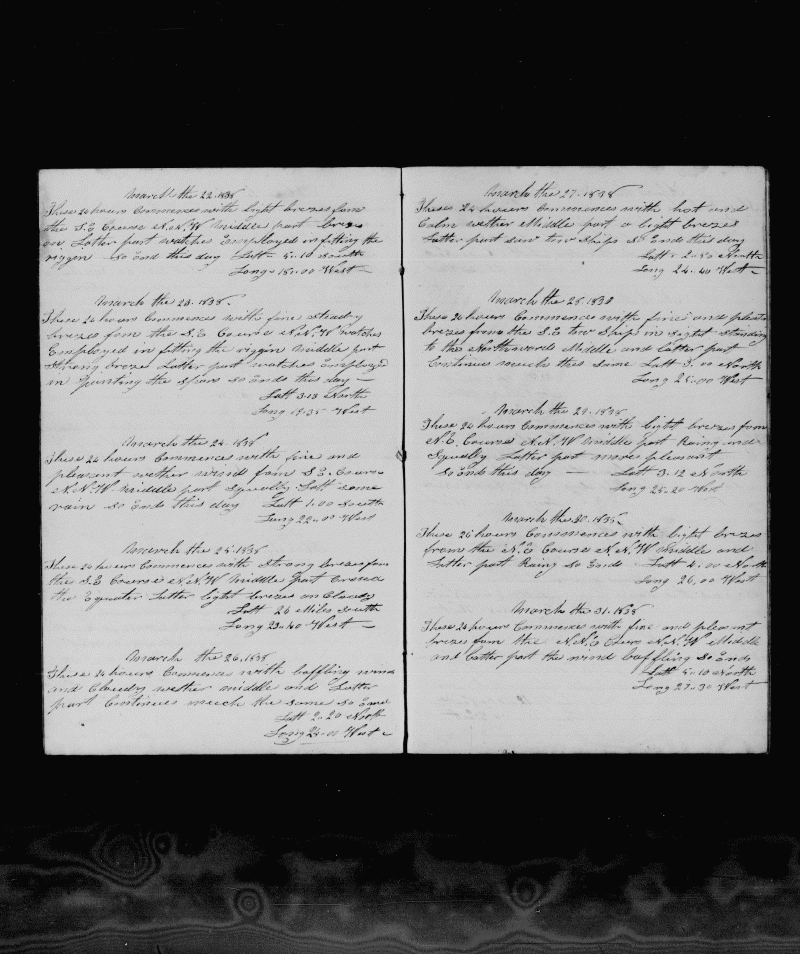 March the 22 1838
These 24 hours Commences with light brezes from
the S.E Course N.N.W middle part brezes
on Latter part watches Employed in fitting the
riggen so Ends this day Latt 5-10 South
Long 18.00 West
March the 23. 1838.
These 24 hours Commences with fine Steady
brezes from the S.E Course N.N.W watches
Employed in fitting the riggin middle part
Strong brezes Latter part watches Employed
in painting the Spars so Ends this day
Latt 3.13 North
Long 19.35 West
March the 24. 1838
These 24 hours Commences with fine and
pleasant wether wind from S.E. Course
N.N.W. middle part Squally Latt some
rain so Ends this day Latt 1.00 South
Long 22.00 West
March the 25. 1838
These 24 hours Commences with Strong brezes from
the S.E Course N.N.W middle part Crossed
the Equater Latter light brezes an Cloudy
Latt 24 Miles South
Long 23.40 West
March the 26. 1838
These 24 hours Commences with baffling wind
and Cloudy wether middle and Latter
part Continues much the same so Ends
Latt 2.20 North
Long 24.00 West
March the 27. 1838
These 24 hours Commences with hot and
Calm wether Middle part a light brezes
Latter part saw tow Ships So Ends this day
Latt 2.50 North
Long 24.40 West
March the 28. 1838
These 24 hours Commences with fine and pleasant
brezes from the S.E tow Ships in Sight Standing
to the Northwards Middle and Latter part
Continues much the Same Latt 3.00 North
Long 25.00 West
March the 29. 1838
These 24 hours Commences with light brezes from
N.E. Course N.N.W Middle part Raing and
Squally Latter part more pleasant
so Ends this day Latt 3.12 North
Long 25.20 West
March the 30. 1838.
These 24 hours Commences with light brezes
from the N.E Course N.N.W Middle and
Latter part Raing So Ends Latt 4.00 North
Long 26.00 West
March the 31. 1838
These 24 hours Commences with fine and pleasant
brezes from the N.N.E Cours N.N.W Middle
and Latter part the wind baffling So Ends
Latt 5.10 North
Long 27.30 West